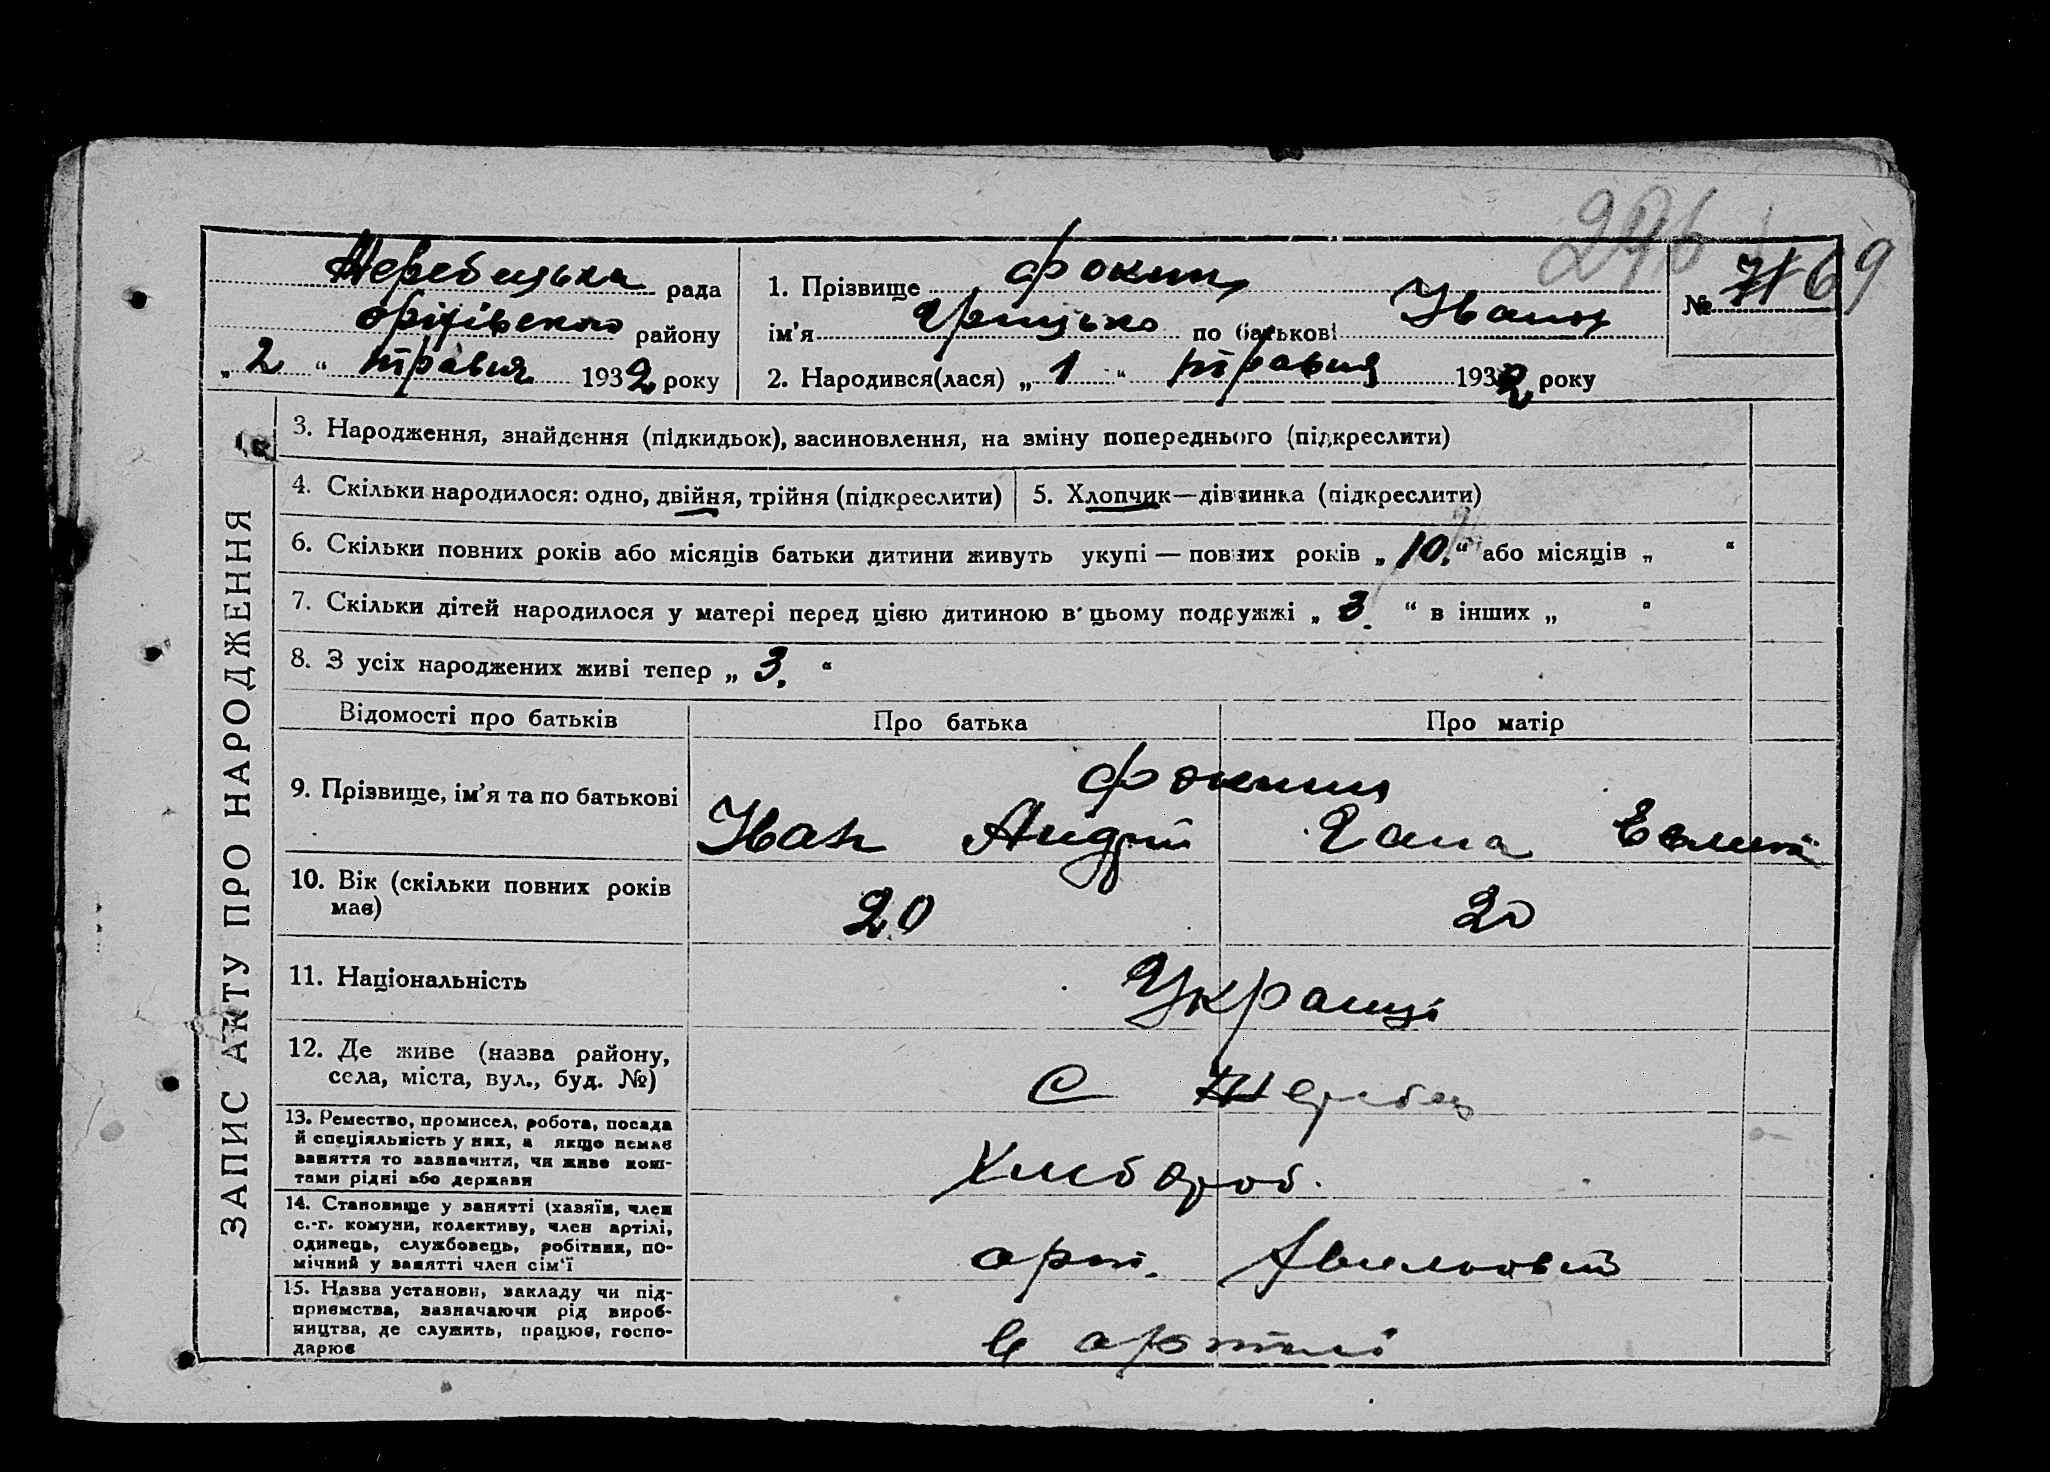 296
Жеребецька рада
Оріхівського району
„ 2 “ травня 1932 року
1. Прізвище Фокин
ім’я Грицько по батькові Іванов
2. Народився(лася) „ 1 “ травня 1932 року
№ 71 69
ЗАПИС АКТУ ПРО НАРОДЖЕННЯ
3. Народження, знайдення (підкидьок), засиновлення, на зміну попереднього (підкреслити)
4. Скільки народилося: одно, двійня, трійня (підкреслити)
5. Хлопчик—дівчинка (підкреслити)
6. Скільки повних років або місяців батьки дитини живуть укупі — повних років „ 10. “ або місяців „ “
7. Скільки дітей народилося у матері перед цією дитиною в цьому подружжі „ 3. “ в інших „ “
8. З усіх народжених живі тепер „ 3. “
Відомості про батьків
Про батька
Про матір
9. Прізвище, ім’я та по батькові
Фокини
Іван Андрій Гана
10. Вік (скільки повних років
має)
20
20
11. Національність
Українці
12. Де живе (назва району,
села, міста, вул., буд. №)
С Жеребец
13. Ремество, промисел, робота, посада
й спеціяльність у них, а якщо немає
заняття то зазначити, чи живе кош-
тами рідні або держави
Хлібороб.
14. Становище у занятті (хазяїн, член
с.-г. комуни, колективу, член артілі,
одинець, службовець, робітник, по-
мічний у занятті член сім’ї
арт.
15. Назва установи, закладу чи під-
приємства, зазначаючи рід вироб-
ництва, де служить, працює, госпо-
дарює
в артілі